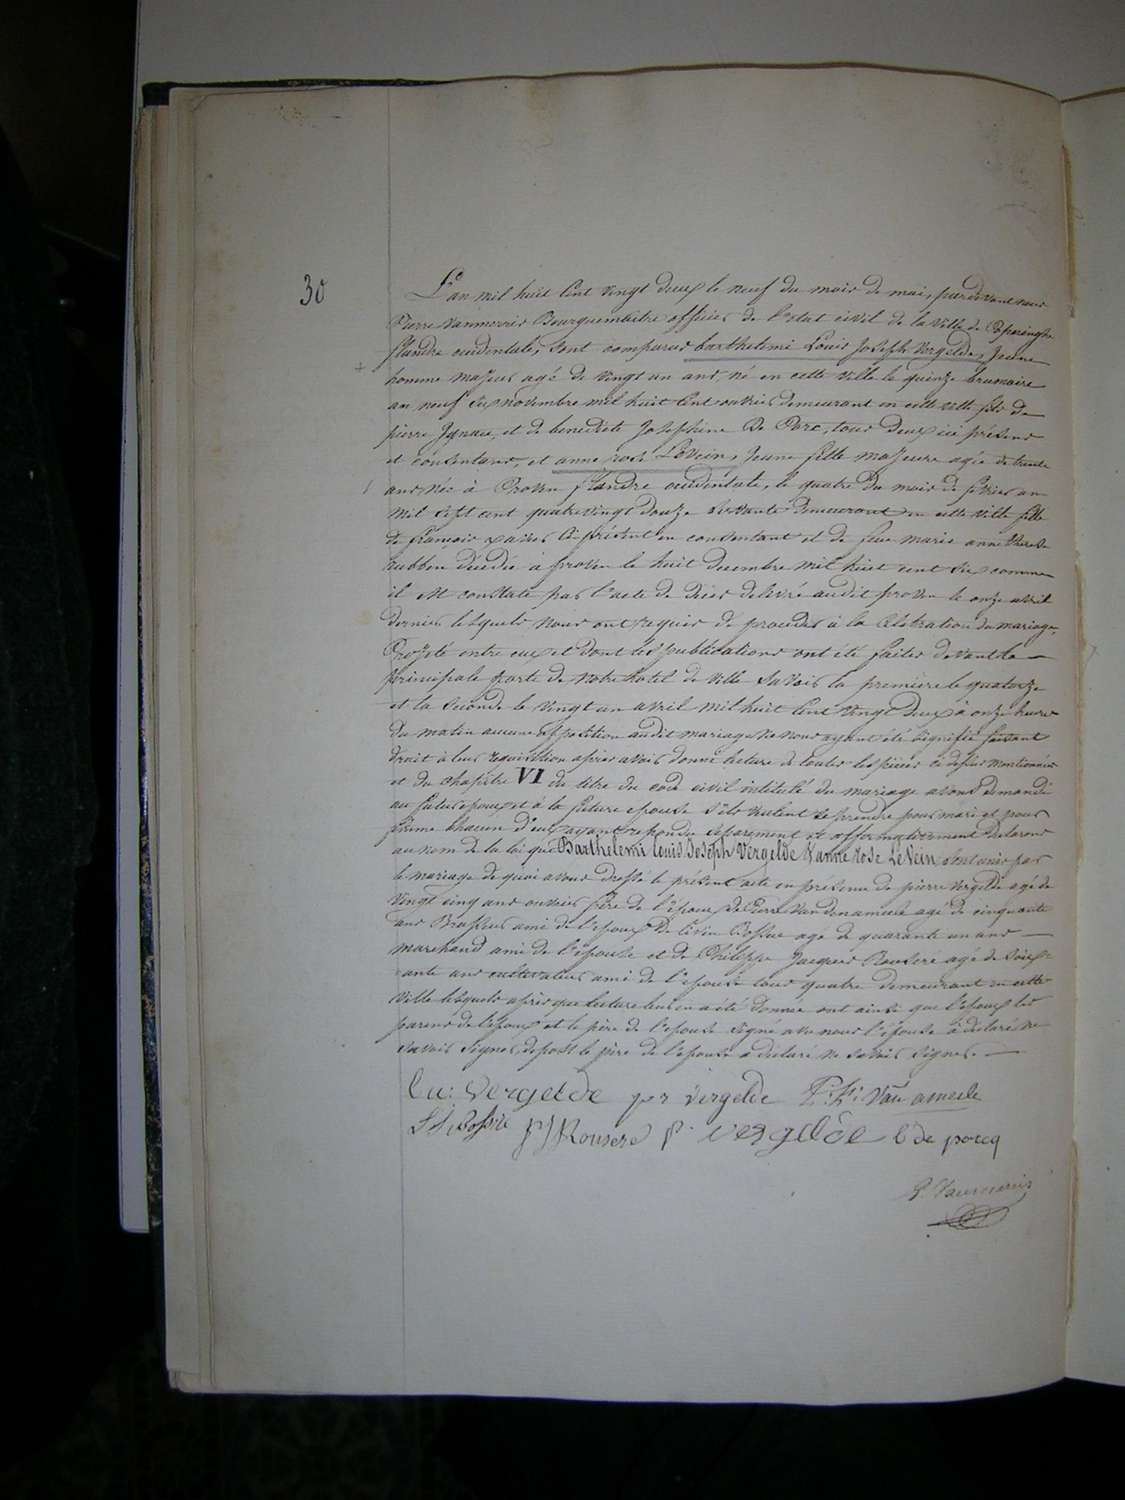 30
L'an mil huit cent vingt deux le neuf du mois de mai, pardevant nous
Pierre Vanmerris Bourguemaitre officier de l'etat civil de la Ville de Poperinghe
flandre occidentale, sont comparus barthelemi Louis Joseph Vergelde, Jeune
homme majeur agé de vingt un ans, né en cette ville le quinze brumaire
an neuf six novembre mil huit cent ouvrier demeurant en cette ville fils de
pierre Ignace, et de benedicte Josephine De Porc, tous deux ici présens
et consentans, et anne rose LeVein, Jeune fille majeure agée de trente
ans née à Proven flandre occidentale, le quatre du mois de fevrier an
mil sept cent quatre vingt douze servante demeurant en cette ville fille
de françois xavier ci présent en consentant et de feue marie anne therese
aubben décédée à proven le huit decembre mil huit cent six comme
il est constaté par l'acte de décès delivré audit proven le onze avril
dernier lesquels nous ont requis de proceder à la celebration du mariage
Projeté entre eux et dont les publications ont été faites devant la
principale porte de notre hotel de ville savoir la premiere le quatorze
et la seconde le vingt un avril mil huit cent vingt deux à onze heures
du matin aucune opposition audit mariage ne nous ayant été signifié faisant
droit à leur requisition après avoir donné lecture de toutes les pièces ci dessus mentionnées
et du chapitre VI du titre du code civil intitulé du mariage avons demandé
au futur epoux et à la future epouse s'ils veulent se prendre pour mari et pour
femme chacun d'eux ayant repondu separement et affirmativement declarons
au nom de la loi que Barthelemi louis Joseph Vergelde & anne rose LeVein sont unis par
le mariage de quoi avons dressé le présent acte en présence de pierre Vergelde agé de
vingt cinq ans ouvrier frère de l'epoux de Pierre Vandenameele agé de cinquante
ans Brasseur ami de l'epoux De Livin Bossue agé de quarante un ans
marchand ami de l'épouse et de Philippe Jacques Rousere agé de soix-
ante ans cultivateur ami de l'epouse tous quatre demeurant en cette
Ville lesquels après que lecture leur en a été donnée ont ainsi que l'epoux les
parens de l'epoux et le père de l'epouse signé avec nous l'épouse à déclaré ne
savoir signer, depost le père de l'epouse a déclaré ne savoir signer.
Lu: Vergelde pr Vergelde Van ameele
PJ Rousere p. vergelde b de porcq
P. Vanmerris